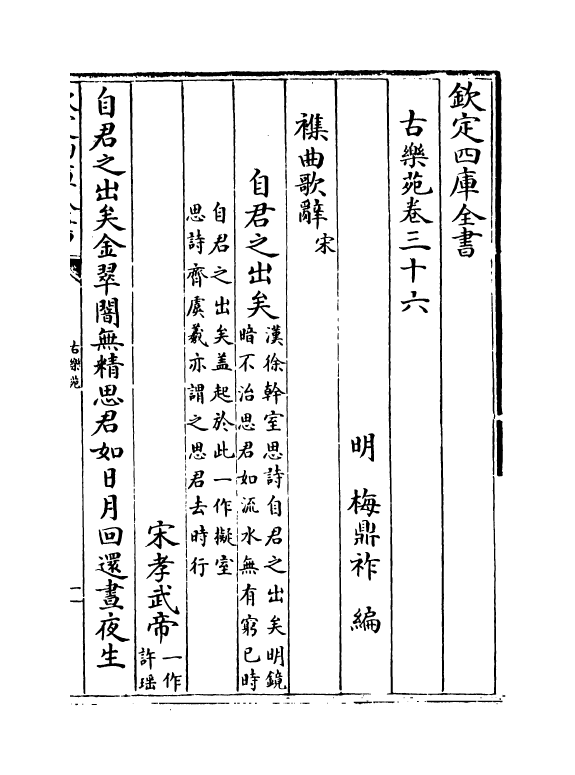 欽定四庫全書
古樂苑卷三十六
明 梅鼎祚 編
襍曲歌辭宋
自君之出矣漢徐幹室思詩自君之出矣明鏡
暗不治思君如流水無有窮已時
自君之出矣蓋起於此一作擬室
思詩齊虞羲亦謂之思君去時行
宋孝武帝一作
許瑶
自君之出矣金翠闇無精思君如日月回還晝夜生
古樂苑
一